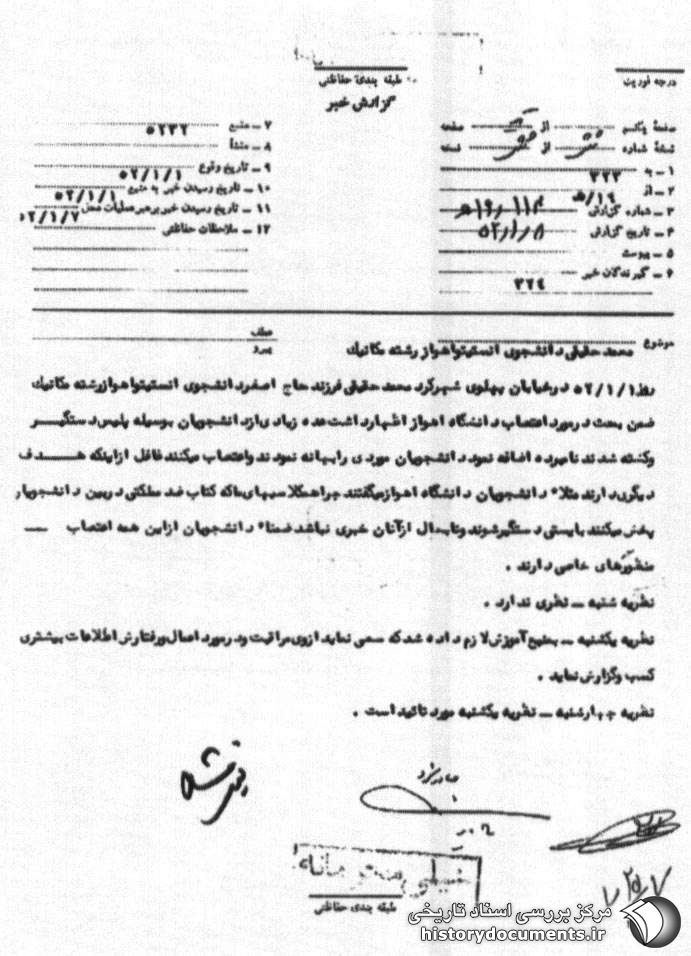 درجه فوریت
طبقه بندی حفاظتی
گزارش خبر
صفحه یکم از صفحه
نسخه شماره از نسخه
۱ - به ۳۲۲
۲ - از ۱۹/ه
۳ - شماره گزارش
۴ - تاریخ گزارش ۵۲/۱/۸
۵ - پیوست
۶ - گیرندگان خبر ۳۲٤
۷ - منبع ۵۲۳۲
۸ - منشأ
۹ - تاریخ وقوع ۵۲/۱/۱
۱۰ - تاریخ رسیدن خبر به منبع ۵۲/۱/۱
۱۱ - تاریخ رسیدن خبر برهبر عملیات محل ۵۲/۱/۷
۱۲ - ملاحظات حفاظتی
موضوع محمد حقیقی دانشجوی انستیتو اهواز رشته مکانیک
عطف
پیرو
روز ۵۲/۱/۱ در خیابان پهلوی شهرکرد محمد حقیقی فرزند حاج اصغر دانشجوی انستیتو اهواز رشته مکانیک
ضمن بحث در مورد اعتصاب دانشگاه اهواز اظهار داشت عده زیادی از دانشجویان بوسیله پلیس دستگیر
وکشته شدند نامبرده اضافه نمود دانشجویان موردی را بهانه نمودند واعتصاب میکنند غافل از اینکه هدف
دیگری دارند مثلا" دانشجویان دانشگاه اهواز میگفتند چرا همکلاسیهای ماکه کتاب ضد مملکتی در بین دانشجویان
پخش میکنند بایستی دستگیر شوند وتابحال از آنان خبری نباشد ضمنا" دانشجویان از این همه اعتصاب
منظورهای خاصی دارند .
نظریه شنبه - نظری ندارد .
نظریه یکشنبه - بمنبع آموزش لازم داده شد که سعی نماید از وی مراقبت ودر مورد اعمال ورفتارش اطلاعات بیشتری
کسب وگزارش نماید .
نظریه چهارشنبه - نظریه یکشنبه مورد تائید است .
خیلی محرمانه
طبقه بندی حفاظتی
مرکز بررسی اسناد تاریخی
historydocuments.ir